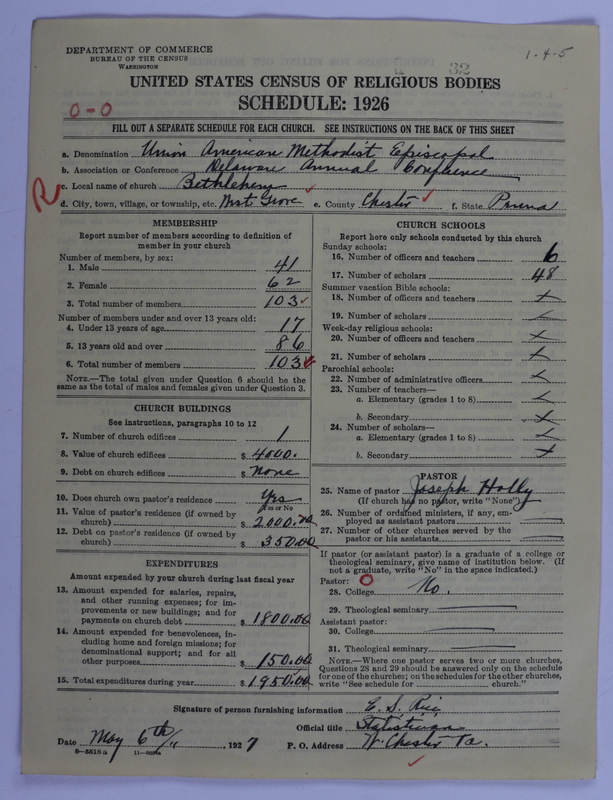 DEPARTMENT OF COMMERCE
BUREAU OF THE CENSUS
WASHINGTON
1-4-5
32
UNITED STATES CENSUS OF RELIGIOUS BODIES
SCHEDULE: 1926
0-0
FILL OUT A SEPARATE SCHEDULE FOR EACH CHURCH. SEE INSTRUCTIONS ON THE BACK OF THIS SHEET
R
a. Denomination Union American Methodist Episcopal
b. Association or Conference Delaware Annual Conference
c. Local name of church Bethlehem
d. City, town, village, or township, etc. West Grove e. County Chester f. State Penna
MEMBERSHIP
Report number of members according to definition of member in your church
Number of members, by sex:
1. Male 41
2. Female 62
3. Total number of members 103
Number of members under and over 13 years old:
4. Under 13 years of age 17
5. 13 years old and over 86
6. Total number of members 103
NOTE.—The total given under Question 6 should be the same as the total of males and females given under Question 3.
CHURCH BUILDINGS
See instructions, paragraphs 10 to 12
7. Number of church edifices 1
8. Value of church edifices $ 4000.
9. Debt on church edifices $ None
10. Does church own pastor's residence Yes
(Yes or No)
11. Value of pastor's residence (if owned by church) $ 2000.00
12. Debt on pastor's residence (if owned by church) $ 350.00
EXPENDITURES
Amount expended by your church during last fiscal year
13. Amount expended for salaries, repairs, and other running expenses; for improvements or new buildings; and for payments on church debt $ 1800.00
14. Amount expended for benevolences, including home and foreign missions; for denominational support; and for all other purposes $ 150.00
15. Total expenditures during year $ 1950.00
CHURCH SCHOOLS
Report here only schools conducted by this church
Sunday schools:
16. Number of officers and teachers 6
17. Number of scholars 48
Summer vacation Bible schools:
18. Number of officers and teachers
19. Number of scholars
Week-day religious schools:
20. Number of officers and teachers
21. Number of scholars
Parochial schools:
22. Number of administrative officers
23. Number of teachers—
a. Elementary (grades 1 to 8)
b. Secondary
24. Number of scholars—
a. Elementary (grades 1 to 8)
b. Secondary
PASTOR
25. Name of pastor Joseph Holly
(If church has no pastor, write "None")
26. Number of ordained ministers, if any, employed as assistant pastors
27. Number of other churches served by the pastor or his assistants
If pastor (or assistant pastor) is a graduate of a college or theological seminary, give name of institution below. (If not a graduate, write "No" in the space indicated.)
Pastor: O
28. College No.
29. Theological seminary
Assistant pastor:
30. College
31. Theological seminary
NOTE.—Where one pastor serves two or more churches, Questions 28 and 29 should be answered only on the schedule for one of the churches; on the schedules for the other churches, write "See schedule for church."
Signature of person furnishing information E. S. Rice
Official title Statistician
Date May 6th, 1927 P. O. Address W. Chester Pa.